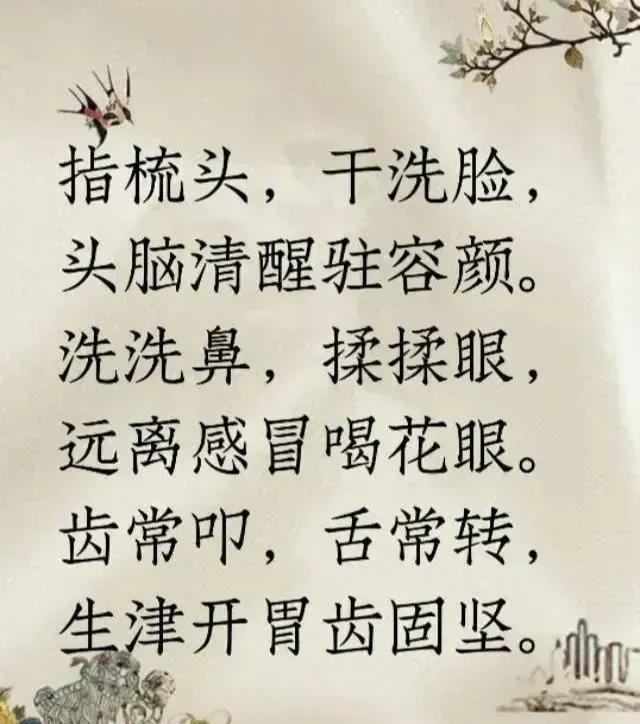 指梳头，干洗脸，
头脑清醒驻容颜。
洗洗鼻，揉揉眼，
远离感冒喝花眼。
齿常叩，舌常转，
生津开胃齿固坚。